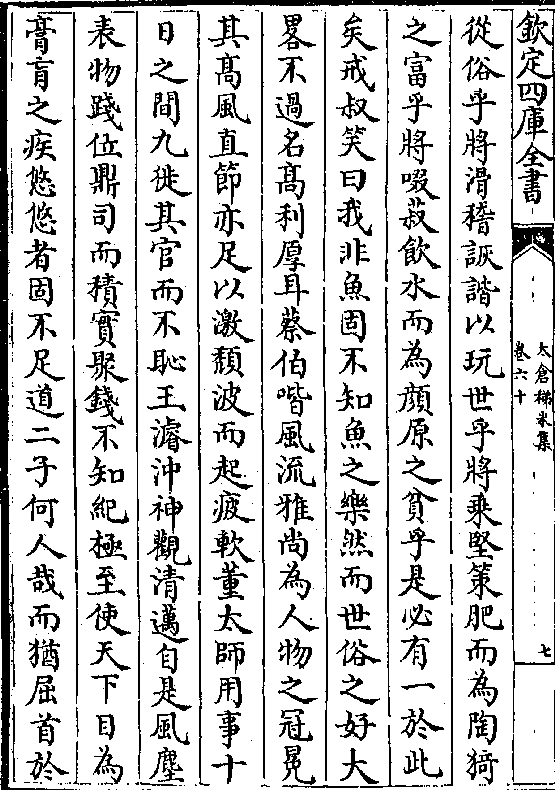 欽定四庫全書
太倉稊米集
卷六十
七
從俗乎將滑稽詼諧以玩世乎將乘堅策肥而為陶猗
之富乎將啜菽飲水而為顔原之貧乎是必有一於此
矣戒叔笑曰我非魚固不知魚之樂然而世俗之好大
畧不過名髙利厚耳蔡伯喈風流雅尚為人物之冠冕
其髙風直節亦足以激頽波而起疲軟董太師用事十
日之間九徙其官而不恥王濬沖神觀清邁自是風塵
表物踐位鼎司而積實聚錢不知紀極至使天下目為
膏肓之疾悠悠者固不足道二子何人哉而猶屈首於